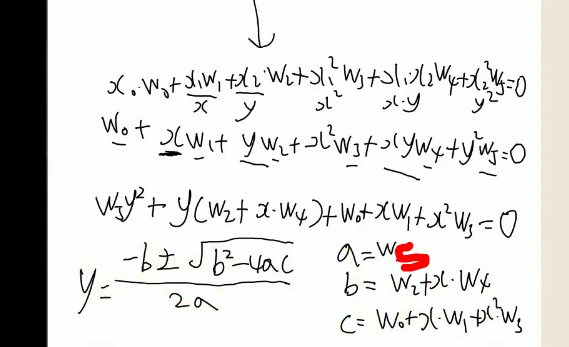 x₀·w₀+x₁w₁+x₂·w₂+x₁²w₃+x₁·x₂w₄+x₂²w₅=0
x y x² x·y y²
w₀+xw₁+yw₂+x²w₃+xyw₄+y²w₅=0
w₅y²+y(w₂+x·w₄)+w₀+xw₁+x²w₃=0
y=(-b±√(b²-4ac))/2a
a=w₅
b=w₂+x·w₄
c=w₀+x·w₁+x²w₃